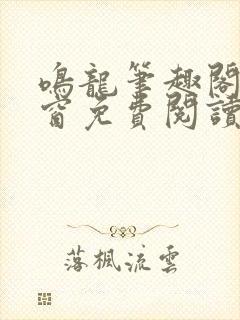 鳴龍筆趣閣
窗免費閱讀
落楓流雲